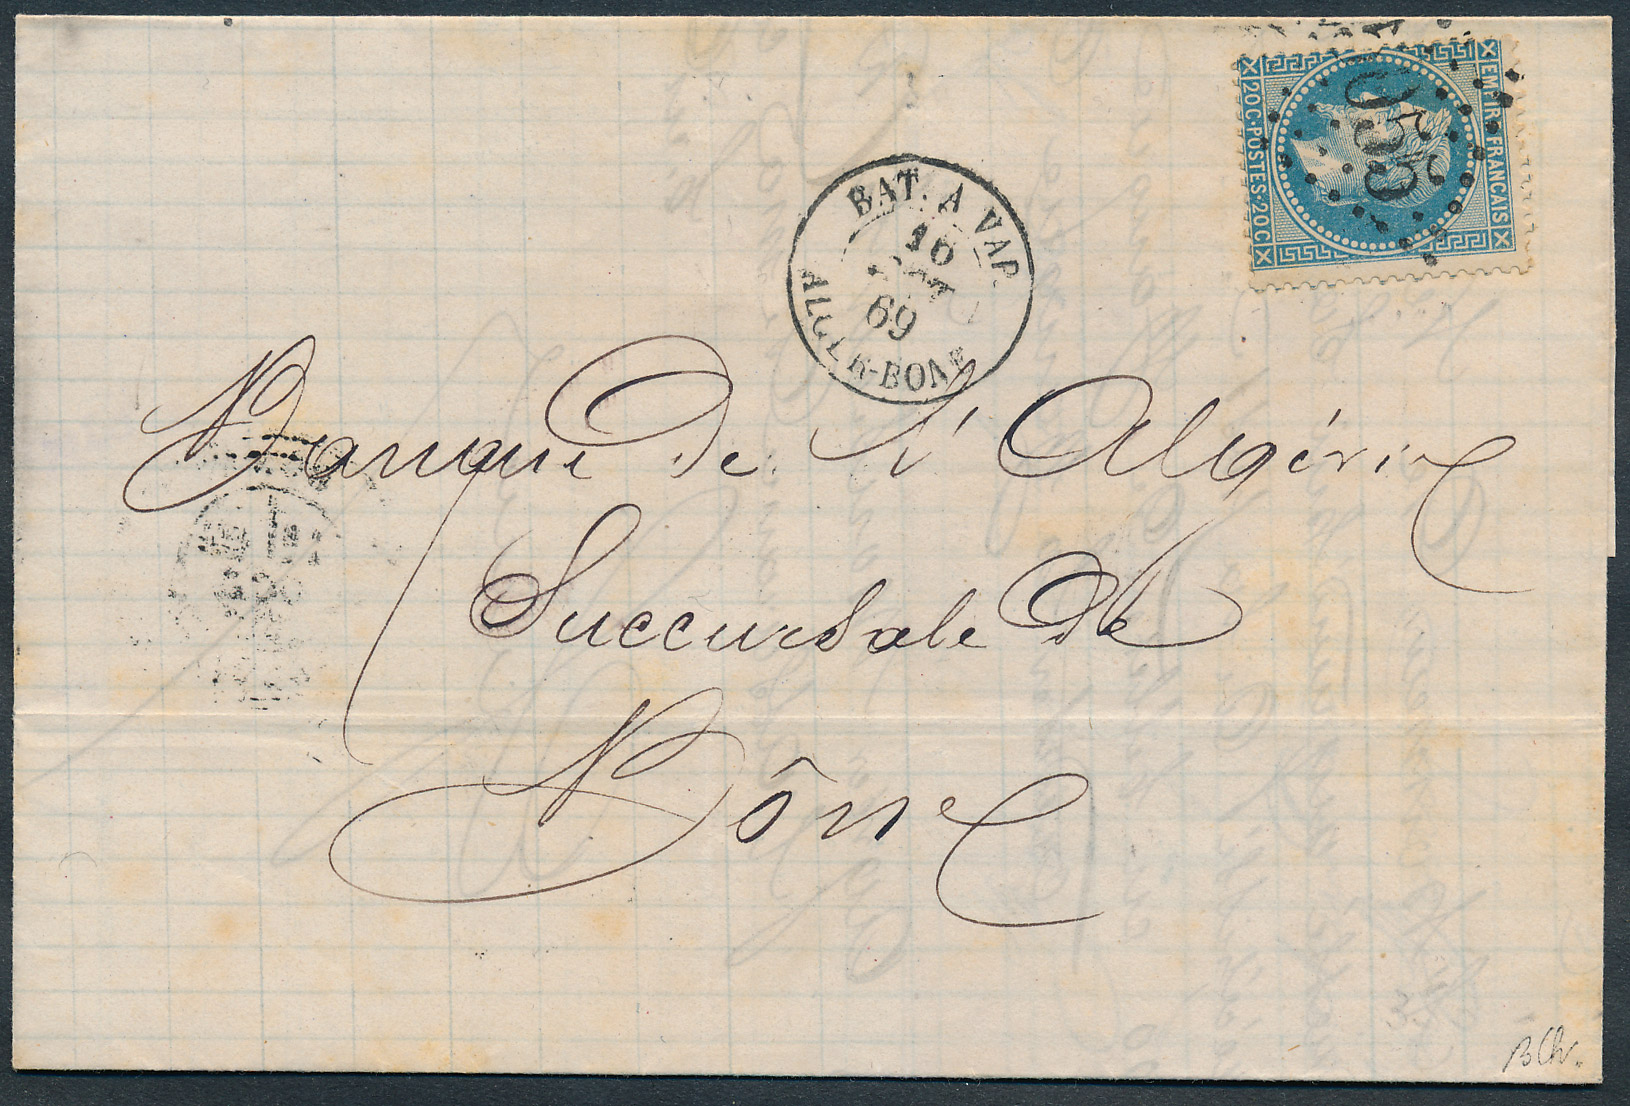 EMPIRE FRANCAIS
20C·POSTES·20C
BAT. A VAP.
16
69
ALGER-BONE
Banque de l'Algérie
Succursale de
Bône
BCh.